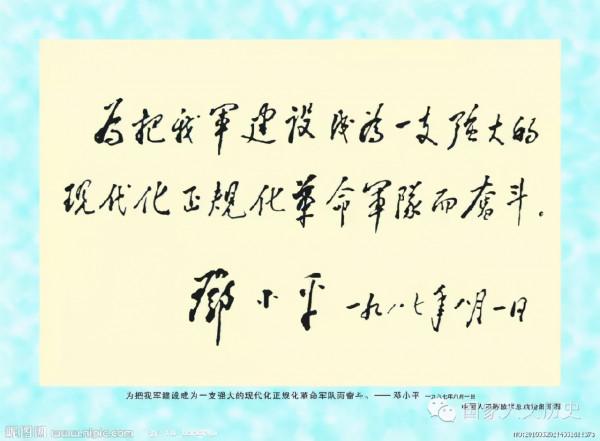 为把我軍建设成为一支强大的
现代化正規化革命軍隊而奋斗。
鄧小平 一九八七年八月一日
为把我军建设成为一支强大的现代化正规化革命军队而奋斗。——邓小平 一九八七年八月一日
国家人文历史
昵图网
www.nipic.com